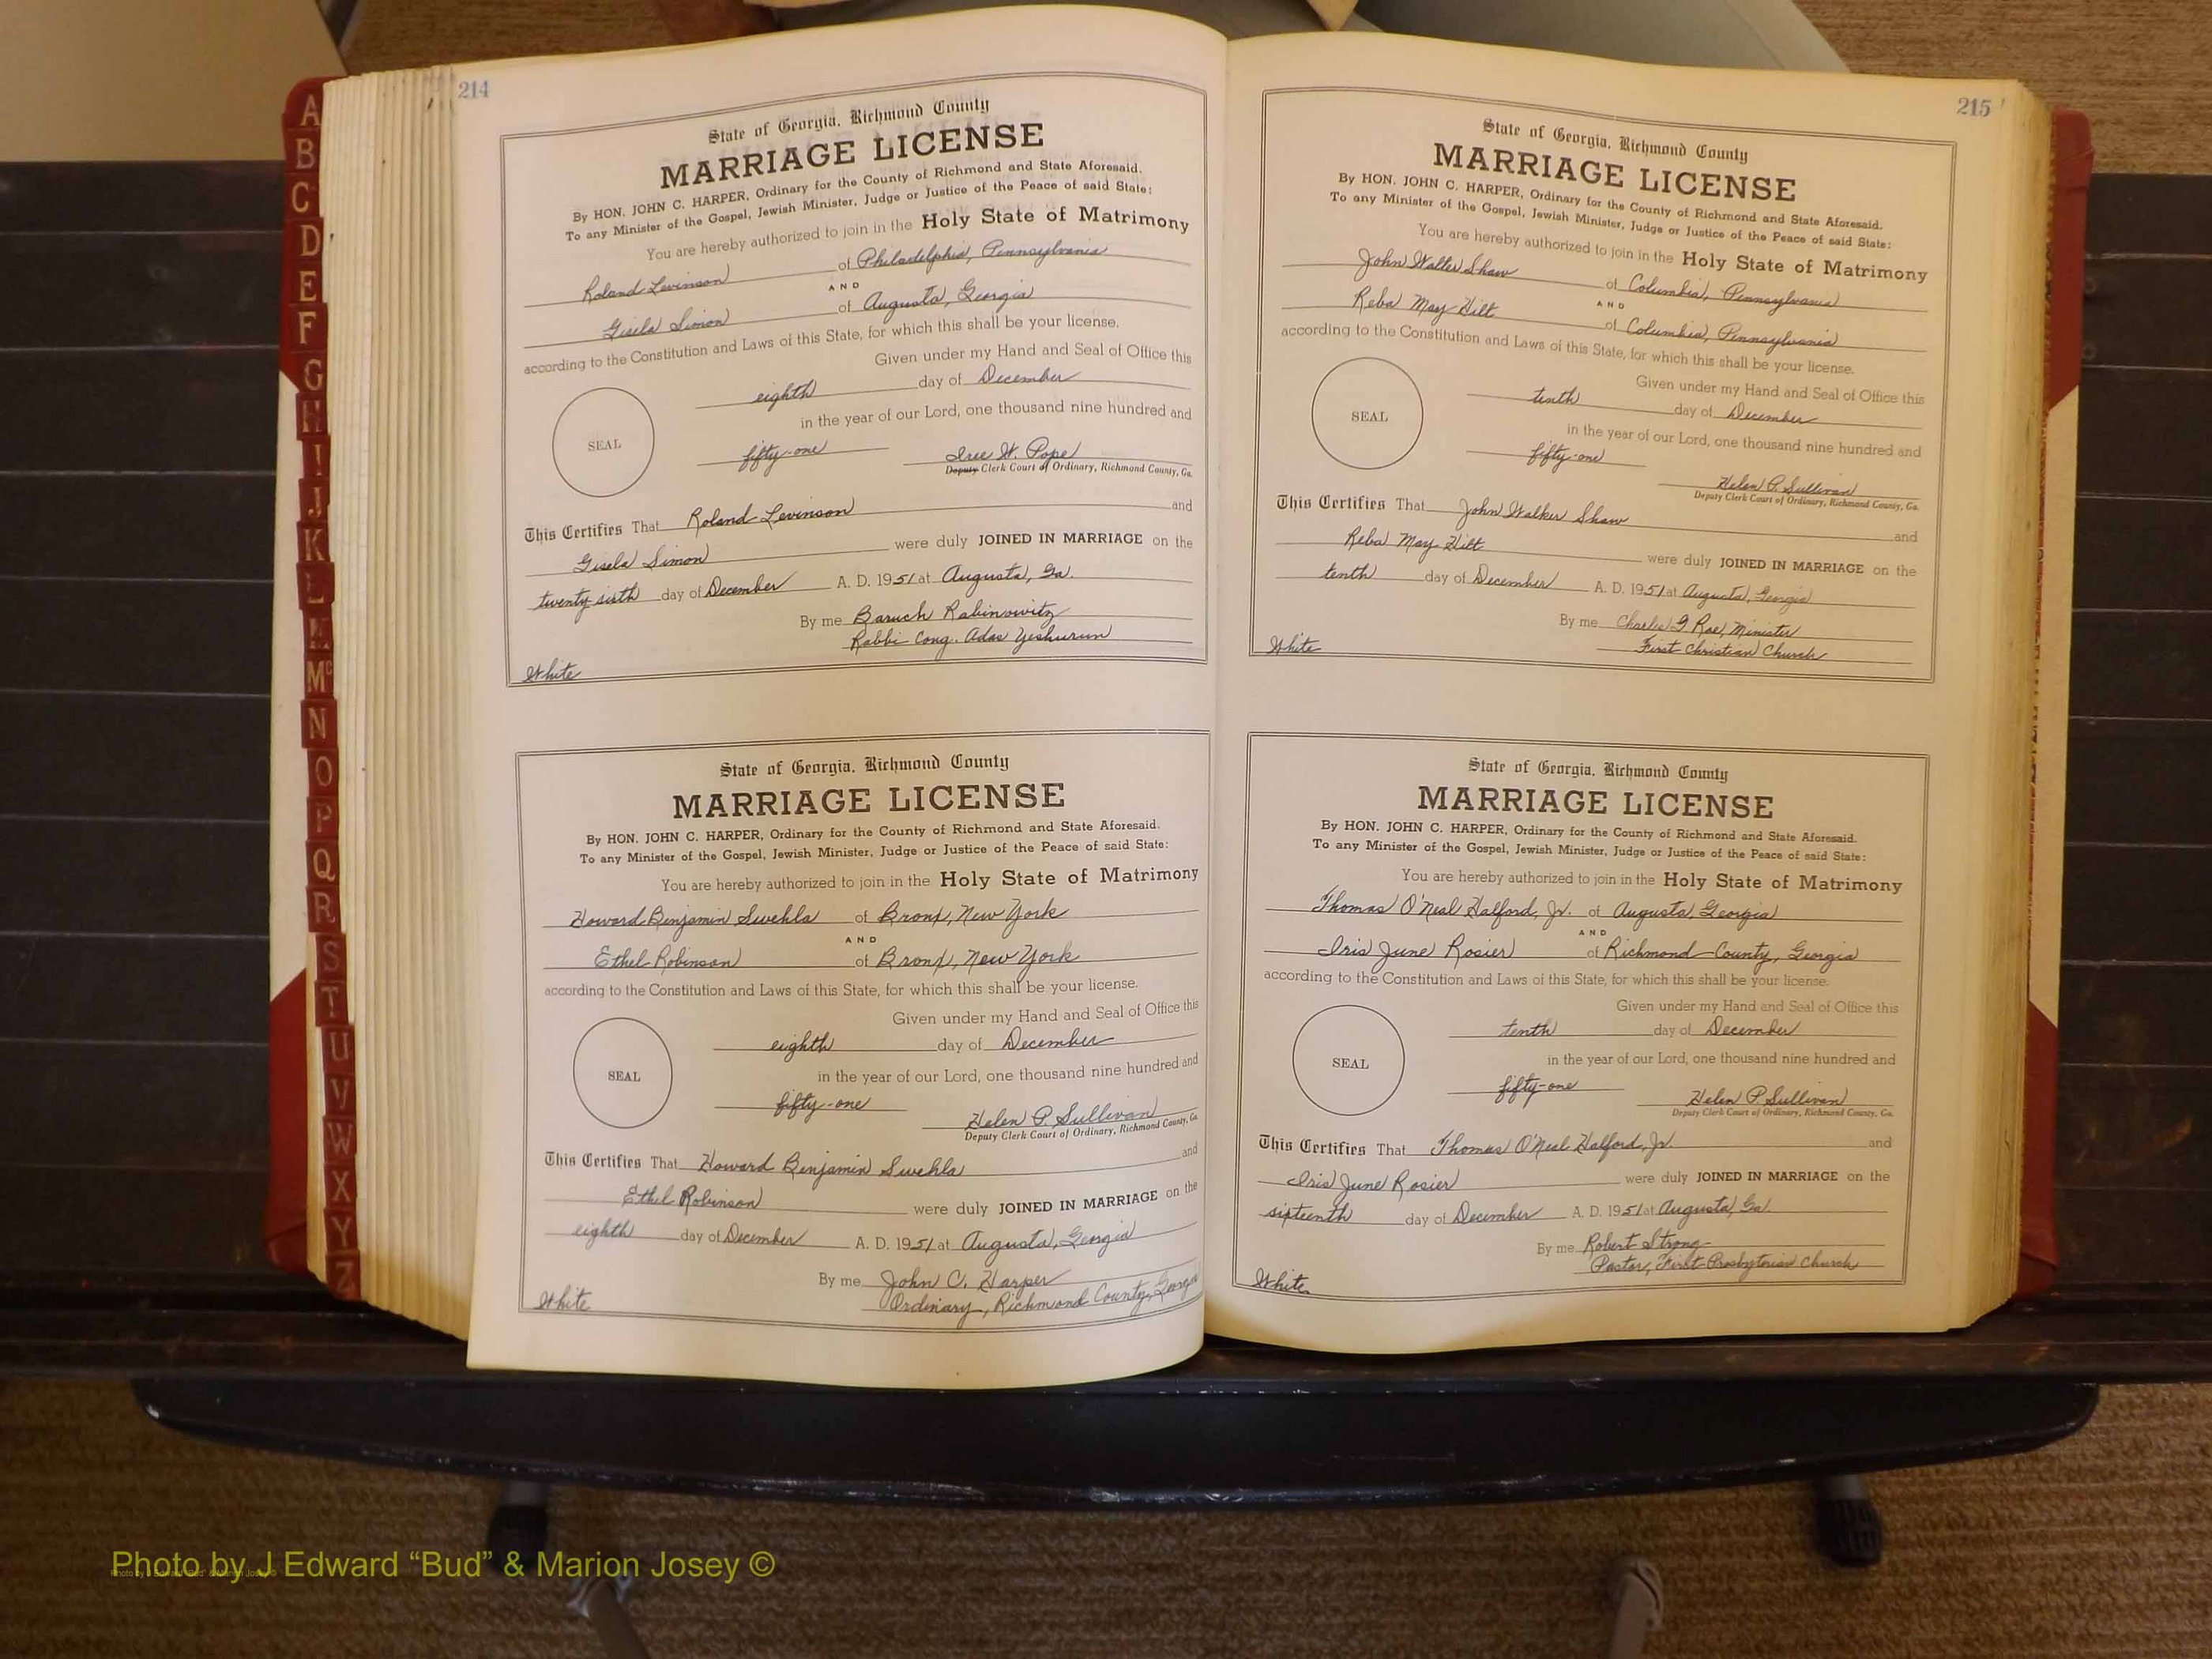 214
State of Georgia, Richmond County
MARRIAGE LICENSE
By HON. JOHN C. HARPER, Ordinary for the County of Richmond and State Aforesaid.
To any Minister of the Gospel, Jewish Minister, Judge or Justice of the Peace of said State:
You are hereby authorized to join in the Holy State of Matrimony
Roland Levinson of Philadelphia, Pennsylvania
AND
Gisela Simon of Augusta, Georgia
according to the Constitution and Laws of this State, for which this shall be your license.
Given under my Hand and Seal of Office this
eighth day of December
in the year of our Lord, one thousand nine hundred and
SEAL
fifty-one W. Pope
Deputy Clerk Court of Ordinary, Richmond County, Ga.
This Certifies That Roland Levinson and
Gisela Simon were duly JOINED IN MARRIAGE on the
twenty sixth day of December A. D. 1951 at Augusta, Ga.
By me Baruch Rabinowitz
Rabbi Cong. Adas Yeshurun
White
State of Georgia, Richmond County
MARRIAGE LICENSE
By HON. JOHN C. HARPER, Ordinary for the County of Richmond and State Aforesaid.
To any Minister of the Gospel, Jewish Minister, Judge or Justice of the Peace of said State:
You are hereby authorized to join in the Holy State of Matrimony
Howard Benjamin Swehla of Bronx, New York
AND
Ethel Robinson of Bronx, New York
according to the Constitution and Laws of this State, for which this shall be your license.
Given under my Hand and Seal of Office this
eighth day of December
SEAL
in the year of our Lord, one thousand nine hundred and
fifty-one Helen P. Sullivan
Deputy Clerk Court of Ordinary, Richmond County, Ga.
This Certifies That Howard Benjamin Swehla and
Ethel Robinson were duly JOINED IN MARRIAGE on the
eighth day of December A. D. 1951 at Augusta, Georgia
By me John C. Harper
Ordinary, Richmond County, Georgia
White
215
State of Georgia, Richmond County
MARRIAGE LICENSE
By HON. JOHN C. HARPER, Ordinary for the County of Richmond and State Aforesaid.
To any Minister of the Gospel, Jewish Minister, Judge or Justice of the Peace of said State:
You are hereby authorized to join in the Holy State of Matrimony
John Walter Shaw of Columbia, Pennsylvania
AND
Reba May Hilt of Columbia, Pennsylvania
according to the Constitution and Laws of this State, for which this shall be your license.
Given under my Hand and Seal of Office this
tenth day of December
SEAL
in the year of our Lord, one thousand nine hundred and
fifty-one
Helen P. Sullivan
Deputy Clerk Court of Ordinary, Richmond County, Ga.
This Certifies That John Walker Shaw and
Reba May Hilt were duly JOINED IN MARRIAGE on the
tenth day of December A. D. 1951 at Augusta, Georgia
By me Charlie G Rae, Minister
First Christian Church
White
State of Georgia, Richmond County
MARRIAGE LICENSE
By HON. JOHN C. HARPER, Ordinary for the County of Richmond and State Aforesaid.
To any Minister of the Gospel, Jewish Minister, Judge or Justice of the Peace of said State:
You are hereby authorized to join in the Holy State of Matrimony
Thomas O'Neal Halford, Jr. of Augusta, Georgia
AND
Iris June Rosier of Richmond County, Georgia
according to the Constitution and Laws of this State, for which this shall be your license.
Given under my Hand and Seal of Office this
tenth day of December
SEAL
in the year of our Lord, one thousand nine hundred and
fifty-one Helen P. Sullivan
Deputy Clerk Court of Ordinary, Richmond County, Ga.
This Certifies That Thomas O'Neal Halford, Jr. and
Iris June Rosier were duly JOINED IN MARRIAGE on the
sixteenth day of December A. D. 1951 at Augusta, Ga.
By me Robert Strong
Pastor, First Presbyterian Church
White
A
B
C
D
E
F
G
H
I
J
K
L
M
Mc
N
O
P
Q
R
S
T
U
V
W
X
Y
Z
Photo by J Edward “Bud” & Marion Josey ©
Photo by J Edward “Bud” & Marion Josey ©